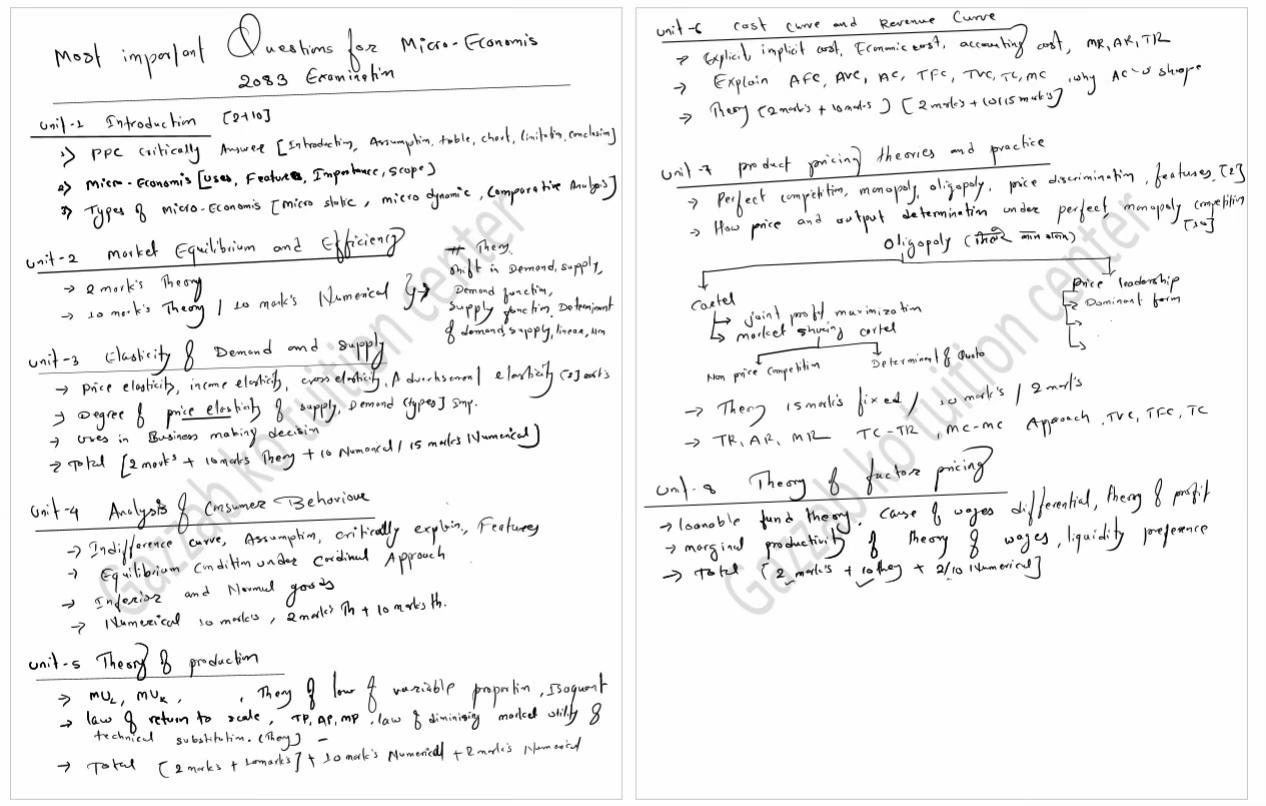 Most important Questions for Micro-Economis
2083 Examination
Unit-1 Introduction [2+10]
1) PPC critically Answer [Introduction, Assumptin, table, chart, limitatin, conclusin]
2) Micro-Economis [uses, Features, Importance, scope]
3) Types of Micro-Economis [micro static, micro dynamic, comparative Analysis]
Unit-2 Market Equilibrium and Efficiency
→ 2 mark's Theory
→ 10 mark's Theory / 10 mark's Numerical } →
# Theory,
shift in Demand, supply,
Demand functin,
supply functin, Determinant
of demand, supply, linear,
Unit-3 Elasticity of Demand and supply
→ price elasticity, income elasticity, cross elasticity, Advertisement elasticity [2]
→ Degree of price elasticity of supply, Demand (types) Imp.
→ Uses in Business making decision
→ Total [2 mark's + 10 marks Theory + 10 Numerical / 15 marks Numerical]
Unit-4 Analysis of Consumer Behaviour
→ Indifference curve, Assumptin, critically explain, Features
→ Equilibrium condition under cardinal Approach
→ Inferior and Normal goods
→ Numerical 10 mark's, 2 mark's Th + 10 marks th.
Unit-5 Theory of production
→ MUL, MUK, , Theory of law of variable proportin, Isoquant
→ law of return to scale, TP, AP, MP, law of diminising market utility of
technical substitutin. (Theory) -
→ Total [2 marks + 10 marks] + 10 mark's Numerical + 2 mark's Numerical
Unit-6 Cost Curve and Revenue Curve
→ Explicit, implicit cost, Economic cost, accounting cost, MR, AR, TR
→ Explain AFC, AVC, AC, TFC, TVC, TC, MC, why AC-U shape
→ Theory [2 mark's + 10 mark's] [2 mark's + 10/15 mark's]
Unit-7 product pricing theories and practice
→ Perfect competitin, monopoly, oligopoly, price discriminatin, features, [2]
→ How price and output determination under perfect, monopoly competitin
[10]
Oligopoly
Cartel
Price leadership
→ joint profit maximization
→ Dominant form
→ market sharing cartel
Non price competition
Determinant of Quota
→ Theory 15 mark's fixed / 10 mark's / 2 mark's
→ TR, AR, MR TC-TR, MC-MC Approach, TVC, TFC, TC
Unit-8 Theory of factor pricing
→ loanable fund theory, cause of wages differential, theory of profit
→ marginal productivity of theory of wages, liquidity preference
→ Total [2 mark's + 10 they + 2/10 Numerical]
Gazzab ko tuition center
Gazzab ko tuition center